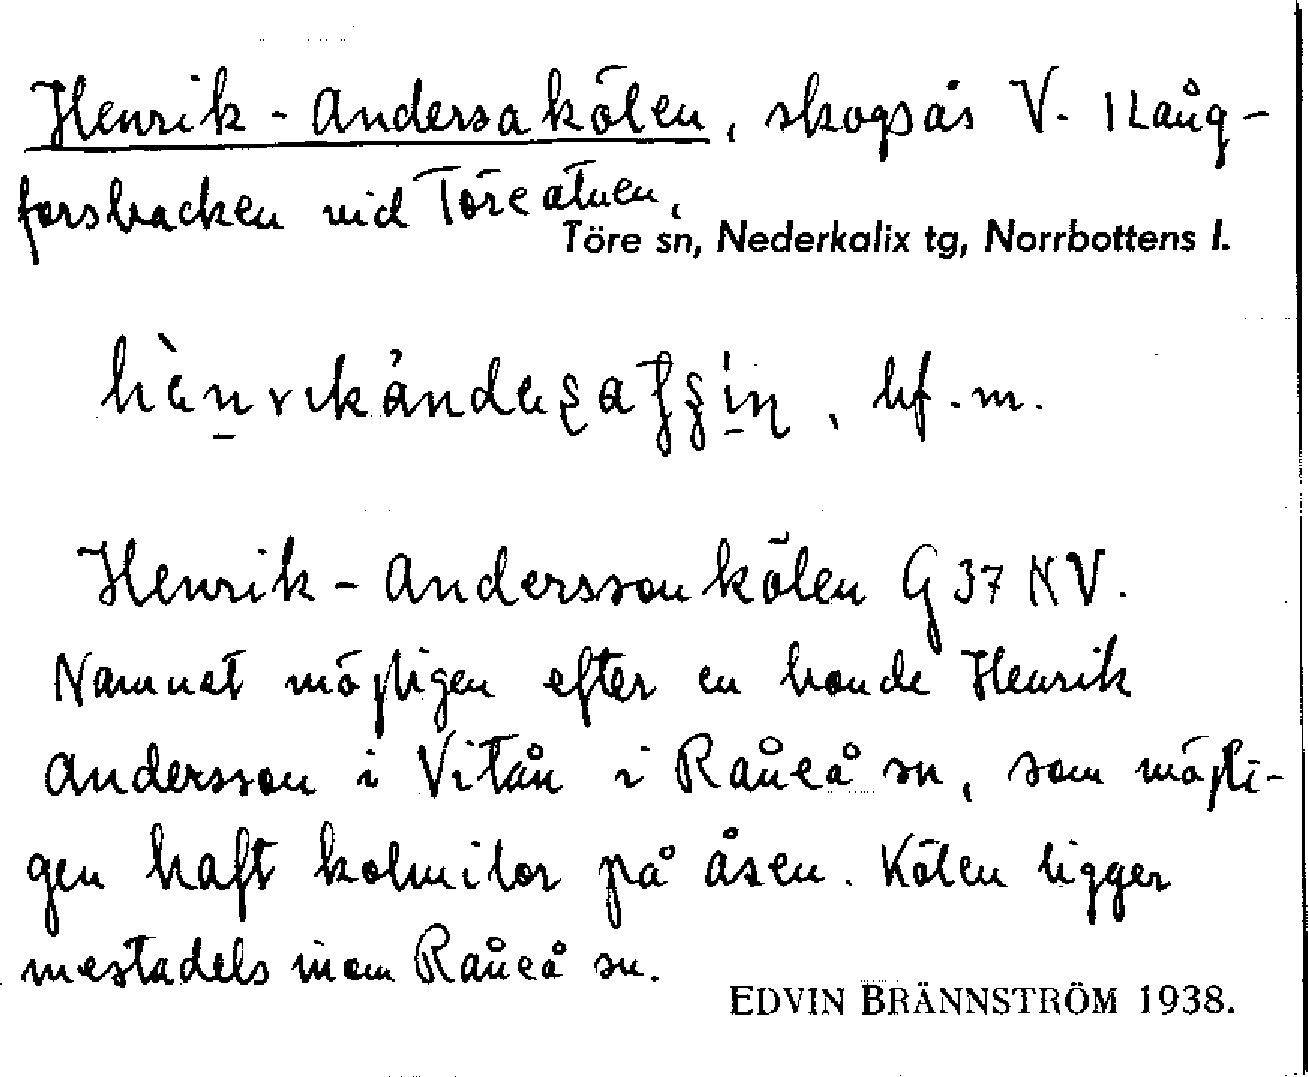 Henrik-Andersakölen, skogsås V. I Lång-
forsbacken vid Töreälven.
Töre sn, Nederkalix tg, Norrbottens l.
bf. m.
Henrik-Anderssonkölen G 37 NV.
Namnet möjligen efter en bonde Henrik
Andersson i Vitån i Råneå sn, som möjli-
gen haft kolmilor på åsen. Kölen ligger
mestadels inom Råneå sn.
EDVIN BRÄNNSTRÖM 1938.